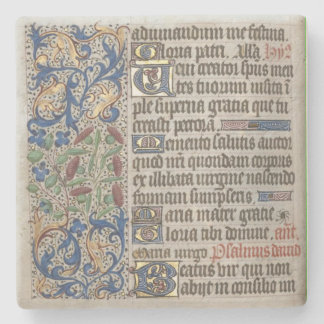 adiuuandum me festina.
Gloria patri. Alla. hyꝰ
Qui creator spūs men
tes tuorum uisita ī
ple superna gratia que tu
creasti pectora.
Memento salutis auctor
quod nr̄i quondam corpus
ex illibata uirgine nascendo
formam sumpseris
Maria mater gratie
Gloria tibi domine. ant.
Maria uirgo Psalmus dauid
Beatus vir qui non
abijt in consilio im